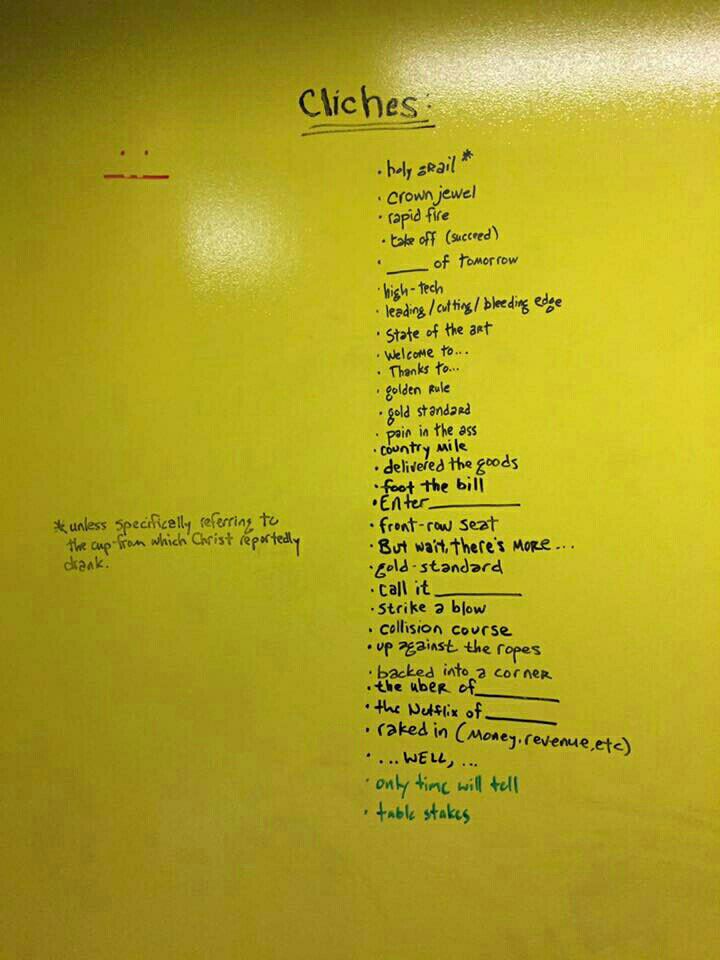 Cliches:
• holy grail *
• crown jewel
• rapid fire
• take off (succeed)
• ____ of tomorrow
• high-tech
• leading/cutting/bleeding edge
• State of the art
• Welcome to...
• Thanks to...
• golden rule
• gold standard
• pain in the ass
• country mile
• delivered the goods
• foot the bill
• Enter ________
• front-row seat
• But wait, there's more...
• gold-standard
• call it ________
• strike a blow
• collision course
• up against the ropes
• backed into a corner
• the uber of ________
• the Netflix of ________
• raked in (money, revenue, etc)
• ... WELL, ...
• only time will tell
• table stakes
* unless specifically referring to
the cup from which Christ reportedly
drank.